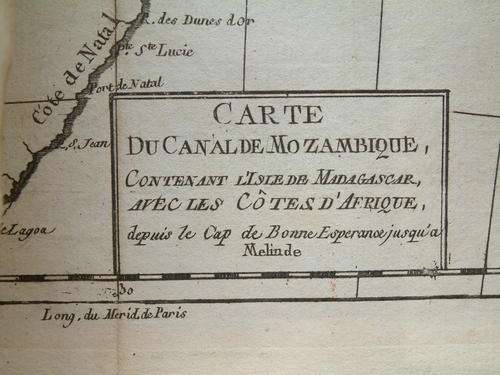 R. des Dunes dOr
Pte. Ste Lucie
Côte de Natal
Port de Natal
R. S. Jean
Lagoa
CARTE
DU CANAL DE MOZAMBIQUE,
CONTENANT L'ISLE DE MADAGASCAR,
AVEC LES CÔTES D'AFRIQUE,
depuis le Cap de Bonne Esperance jusqu'a
Melinde
30
Long. du Merid. de Paris